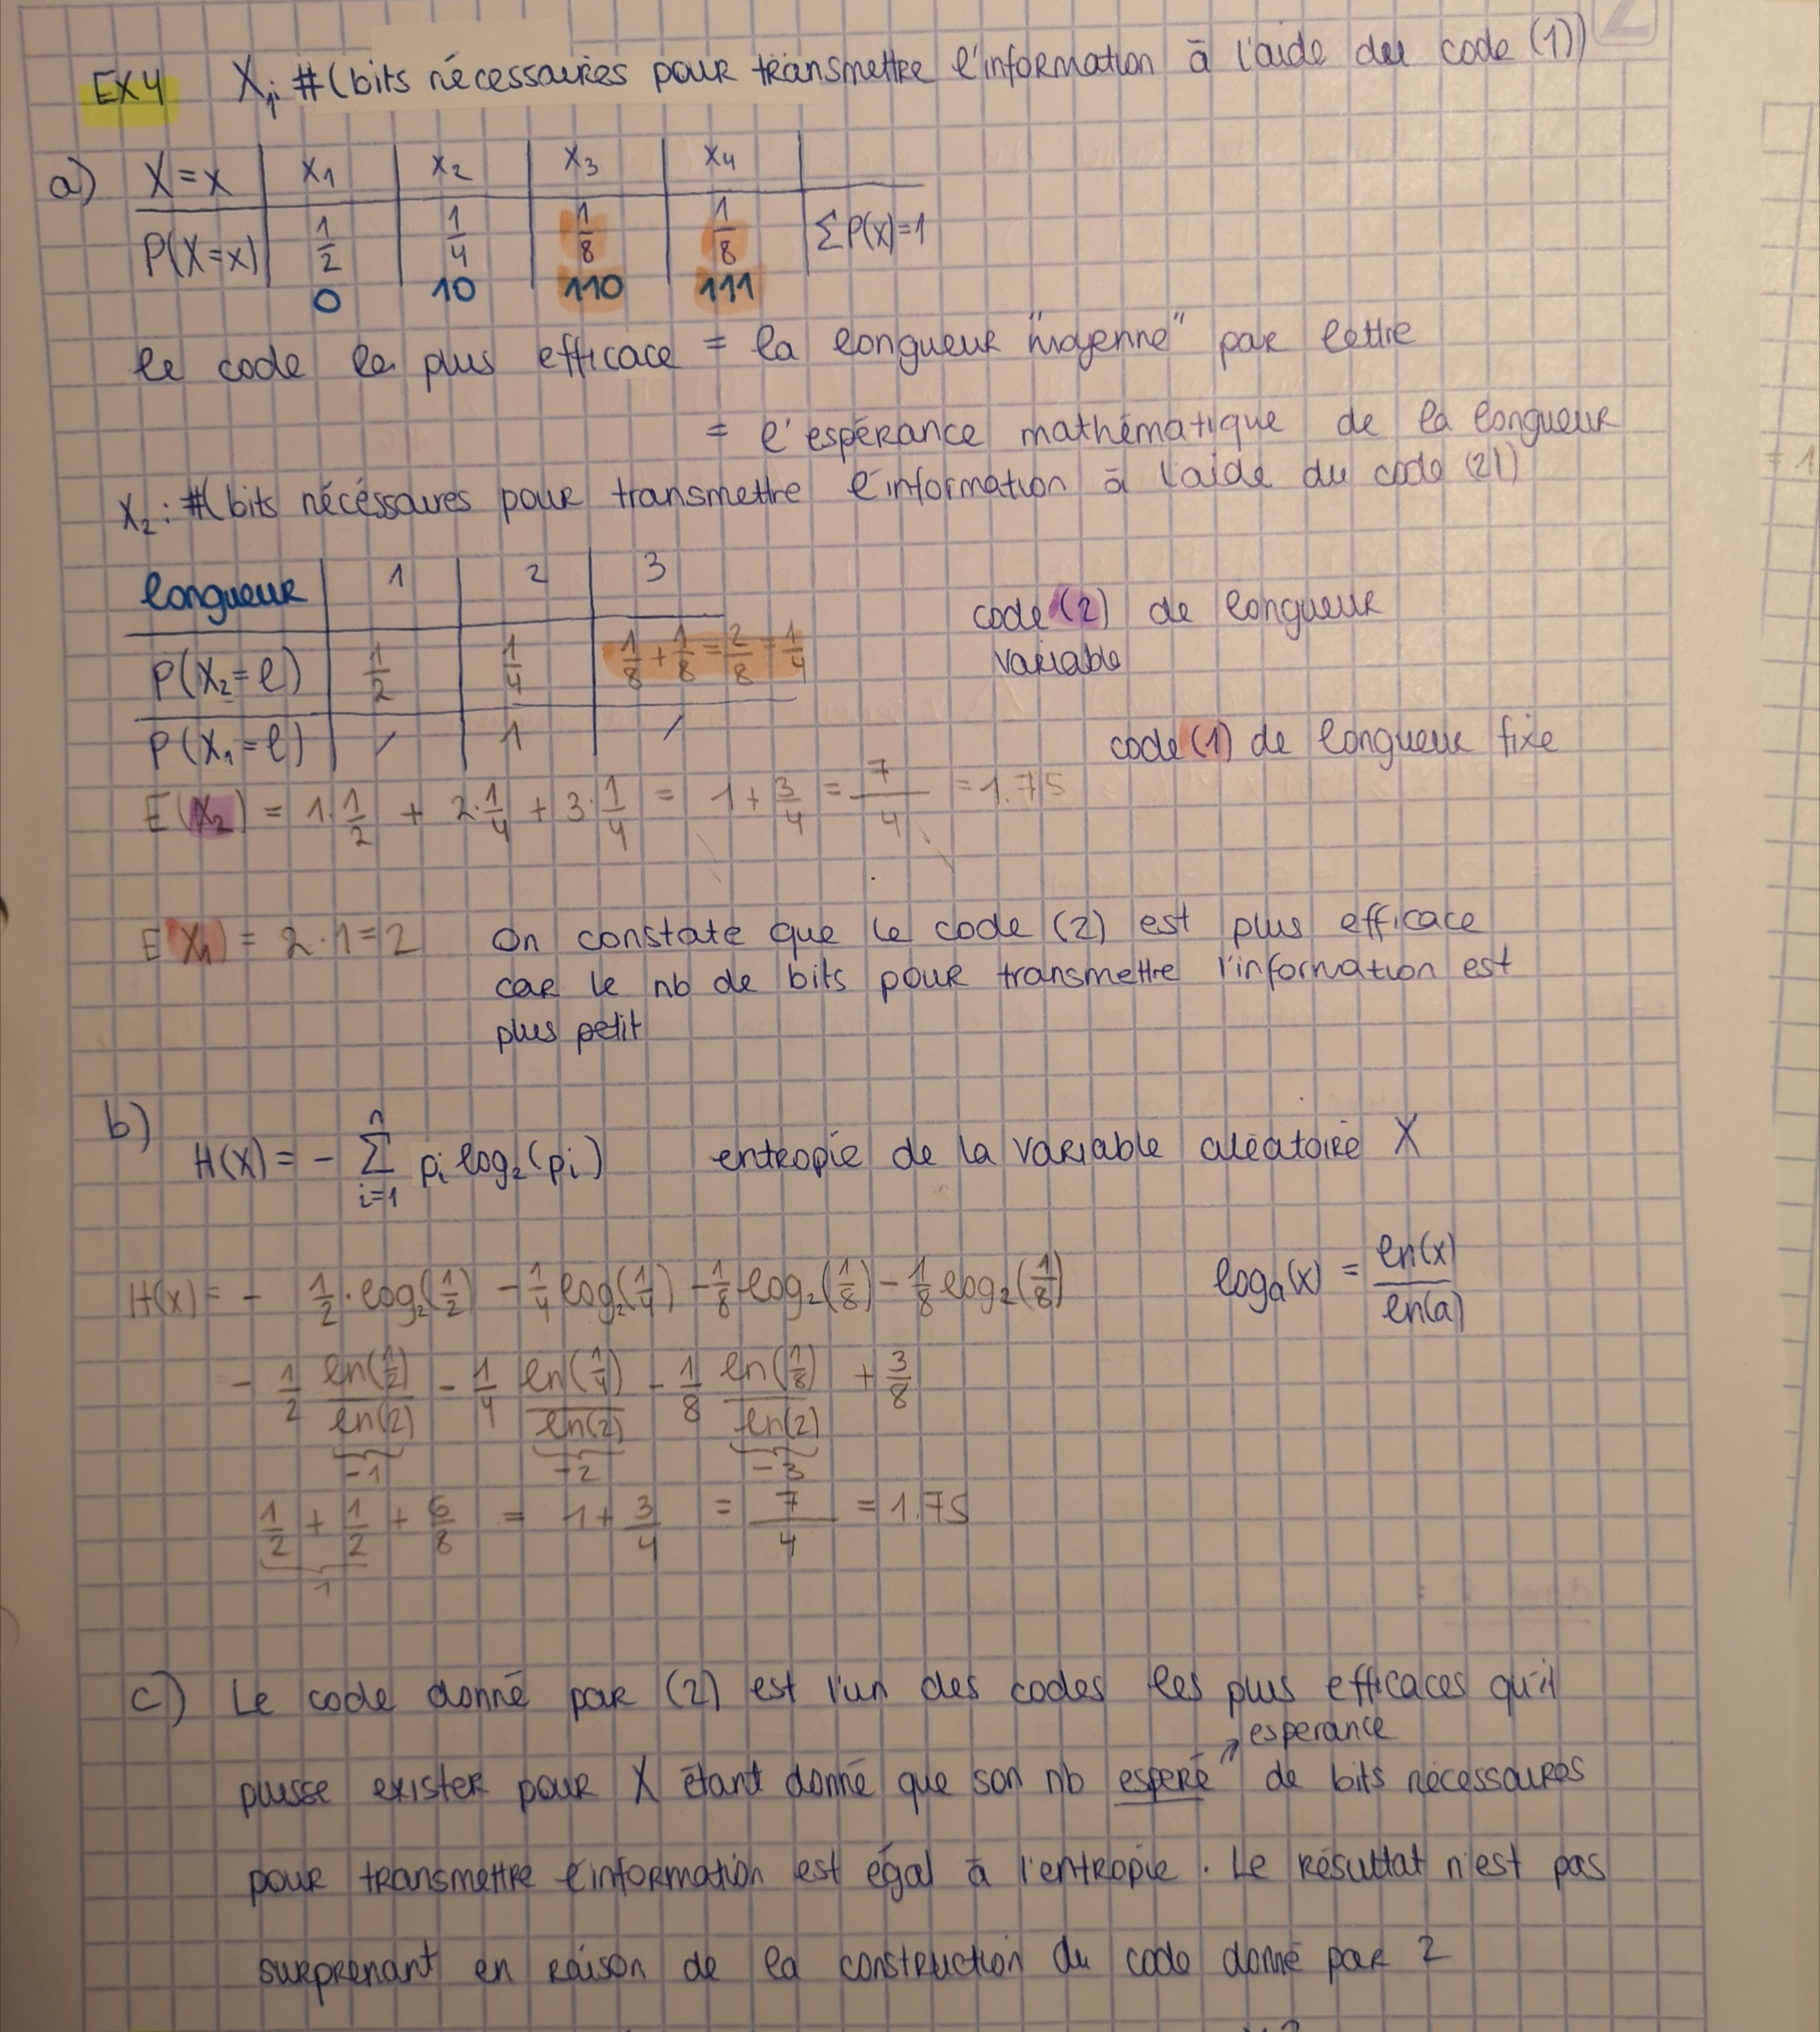 EX4 X₁: #(bits nécessaires pour transmettre l'information à l'aide du code (1))
a) X=x | x₁ | x₂ | x₃ | x₄
P(X=x) | 1/2 | 1/4 | 1/8 | 1/8 | ΣP(x)=1
0 10 110 111
le code le plus efficace = la longueur "moyenne" par lettre
= l'espérance mathématique de la longueur
X₂: #(bits nécéssaires pour transmettre l'information à l'aide du code (2))
longueur | 1 | 2 | 3
P(X₂=l) | 1/2 | 1/4 | 1/8 + 1/8 = 2/8 = 1/4
P(X₁=l) | / | 1 | /
code (2) de longueur
variable
code (1) de longueur fixe
E(X₂) = 1·1/2 + 2·1/4 + 3·1/4 = 1 + 3/4 = 7/4 = 1.75
E(X₁) = 2·1=2 On constate que le code (2) est plus efficace
car le nb de bits pour transmettre l'information est
plus petit
b) H(X) = - Σ_{i=1}^{n} pᵢ log₂(pᵢ) entropie de la variable aléatoire X
H(x) = - 1/2·log₂(1/2) - 1/4 log₂(1/4) - 1/8 log₂(1/8) - 1/8 log₂(1/8)
logₐ(x) = ln(x)/ln(a)
- 1/2 ln(1/2)/ln(2) - 1/4 ln(1/4)/ln(2) - 1/8 ln(1/8)/ln(2) + 3/8
-1 -2 -3
1/2 + 1/2 + 6/8 = 1 + 3/4 = 7/4 = 1.75
1
c) Le code donné par (2) est l'un des codes les plus efficaces qu'il
esperance
puisse exister pour X étant donné que son nb esperé de bits nécessaires
pour transmettre l'information est égal à l'entropie. Le résultat n'est pas
surprenant en raison de la construction du code donné par 2